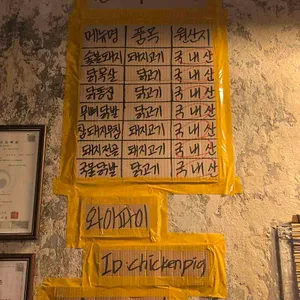 메뉴명 품목 원산지
술불돼지 돼지고기 국내산
닭목살 닭고기 국내산
닭똥집 닭고기 국내산
무뼈닭발 닭고기 국내산
돼지고기 국내산
돼지전골 돼지고기 국내산
국물닭발 닭고기 국내산
와이파이
ID:chickenpig